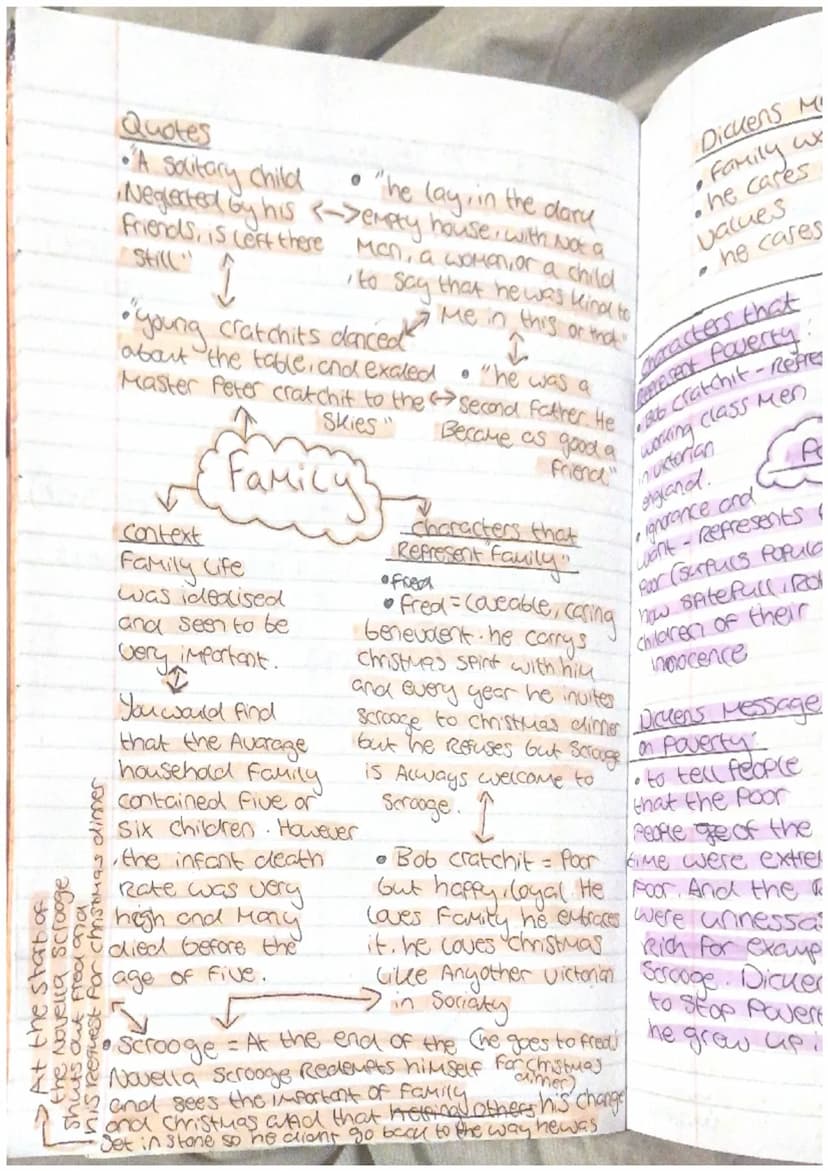 Quotes
• "A solitary child
Neglected by his
Friends, is left there
still"
• "he lay, in the dark
empty house, with not a
Man, a woman, or a child
, to say that he was kind to
me in this or that"
• "young cratchits danced
about the table, and exaled
Master Peter cratchit to the
skies"
• "he was a
second father. He
Become as good a
friend."
Family
Context
Family life
was idealised
and seen to be
very important.
You would find
that the Avarage
household family
contained five or
six children. However
, the infant death
Rate was very
high and Many
died before the
age of five.
Characters that
Represent "Family"
• Fred
• Fred = Loveable, caring
benevolent. he carrys
christmas spirit with him
and every year he invites
scrooge to christmas dinner
but he Refuses but scrooge
is Always welcome to
scrooge.
• Bob cratchit = Poor
but happy, loyal. He
loves Family he embraces
it. he loves christmas
like Anyother victorian
in Sociaty
• Scrooge = At the end of the (he goes to freds
Novella Scrooge Redempts himself for christmas
dinner)
and sees the important of family
and christmas and that helping others his change
set in stone so he didnt go back to the way he was
At the start of
the Novella scrooge
shuts out Fred and
his request for christmas dinner
Dickens M
• Family wa
• he cares
values
• he cares
Characters that
Represent Poverty:
• Bob cratchit - Repre
working class Men
in victorian
england.
• ignorance and
want - Represents
Poor (surpuls Popula
how spatefull,
children of their
innocence
Dickens Message
on Poverty:
• to tell people
that the Poor
People of the
time were extre
Poor. And the
were unnessa
Rich for examp
Scrooge. Dicke
to stop Povert
he grew up i